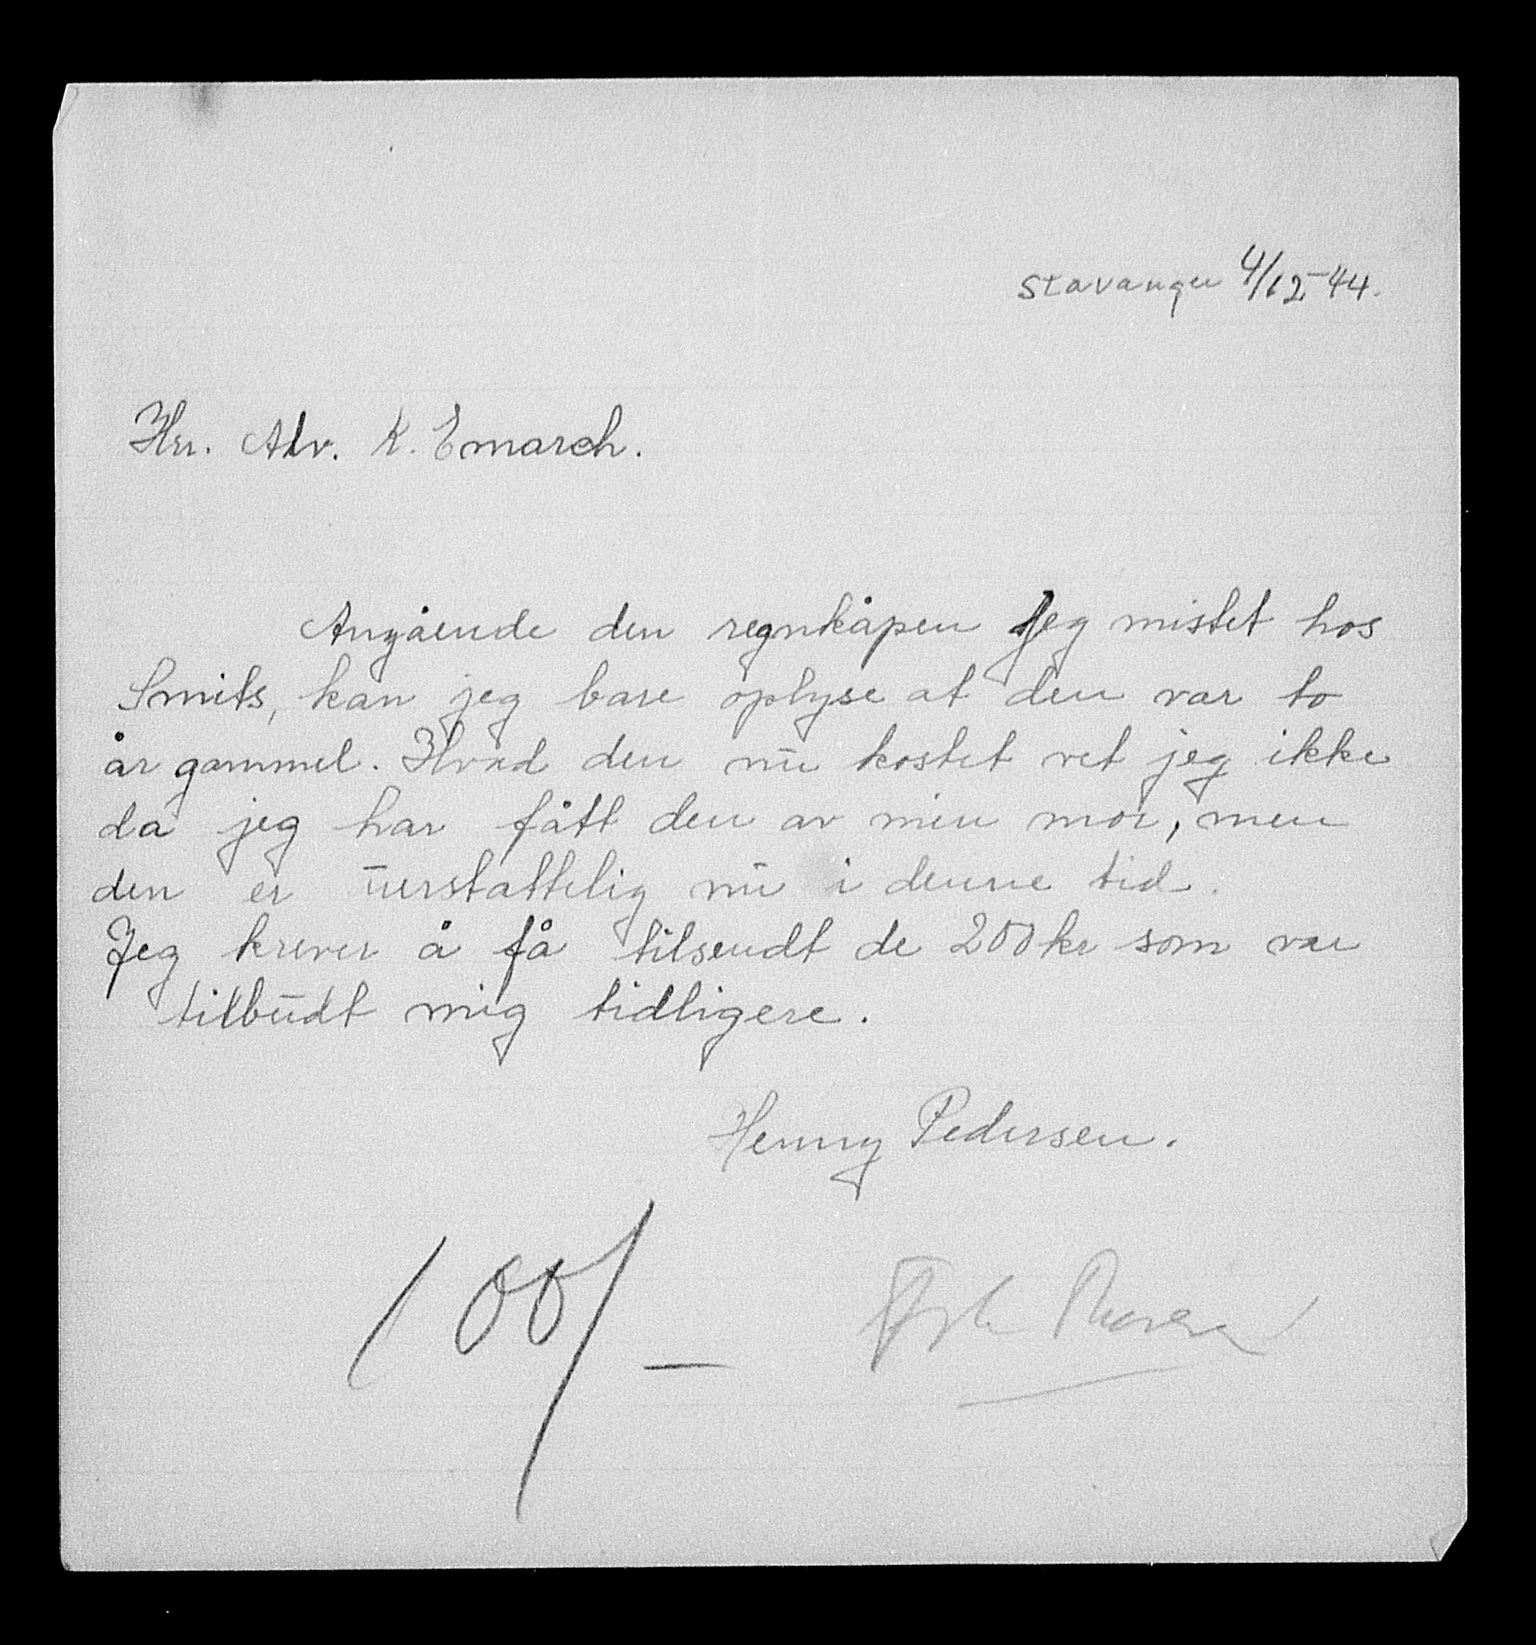 Stavanger 4/12-44.
Hr. Adv. K. Emarch.
Angående den regnkåpen Jeg mistet hos
Smits, kan jeg bare oplyse at den var to
år gammel. Hvad den nu kostet vet jeg ikke
da jeg har fått den av min mor, men
den er uerstattelig nu i denne tid.
Jeg krever å få tilsendt de 200 kr som var
tilbudt mig tidligere.
Henny Pedersen.
100/-